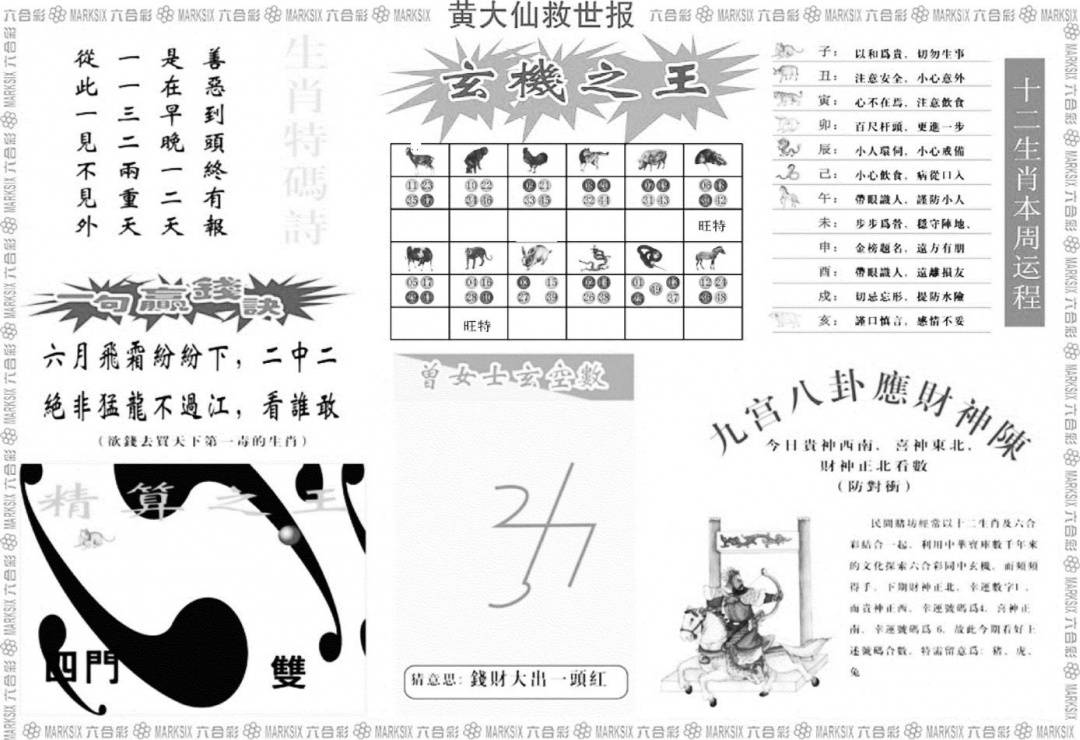 黄大仙救世报
善惡到頭終有報
是在早晚一二天
一一三二兩重天
從此一見不見外
生肖特碼詩
一句贏錢訣
六月飛霜紛紛下，二中二
絕非猛龍不過江，看誰敢
（欲錢去買天下第一毒的生肖）
精算之王
四門
雙
玄機之王
旺特
旺特
曾女士玄空數
猜意思: 錢財大出一頭紅
十二生肖本周运程
子： 以和爲貴，切勿生事
丑： 注意安全，小心意外
寅： 心不在焉，注意飲食
卯： 百尺杆頭，更進一步
辰： 小人環伺，小心戒備
己： 小心飲食，病從口入
午： 帶眼識人，謹防小人
未： 步步爲營，穩守陣地、
申： 金榜題名，遠方有朋
酉： 帶眼識人，遠離損友
戌： 切忌忘形，提防水險
亥： 謹口慎言，感情不妥
九宫八卦應財神陳
今日貴神西南，喜神東北，
財神正北看數
（防對衝）
民間賭坊經常以十二生肖及六合
彩結合一起，利用中華寶庫數千年來
的文化探索六合彩同中玄機，而頻頻
得手，下期財神正北，幸運數字1，
而貴神正西，幸運號碼爲4，喜神正
南，幸運號碼爲 6，故此今期看好上
述號碼合數，特需留意爲：豬、虎、
兔
MARKSIX 六合彩